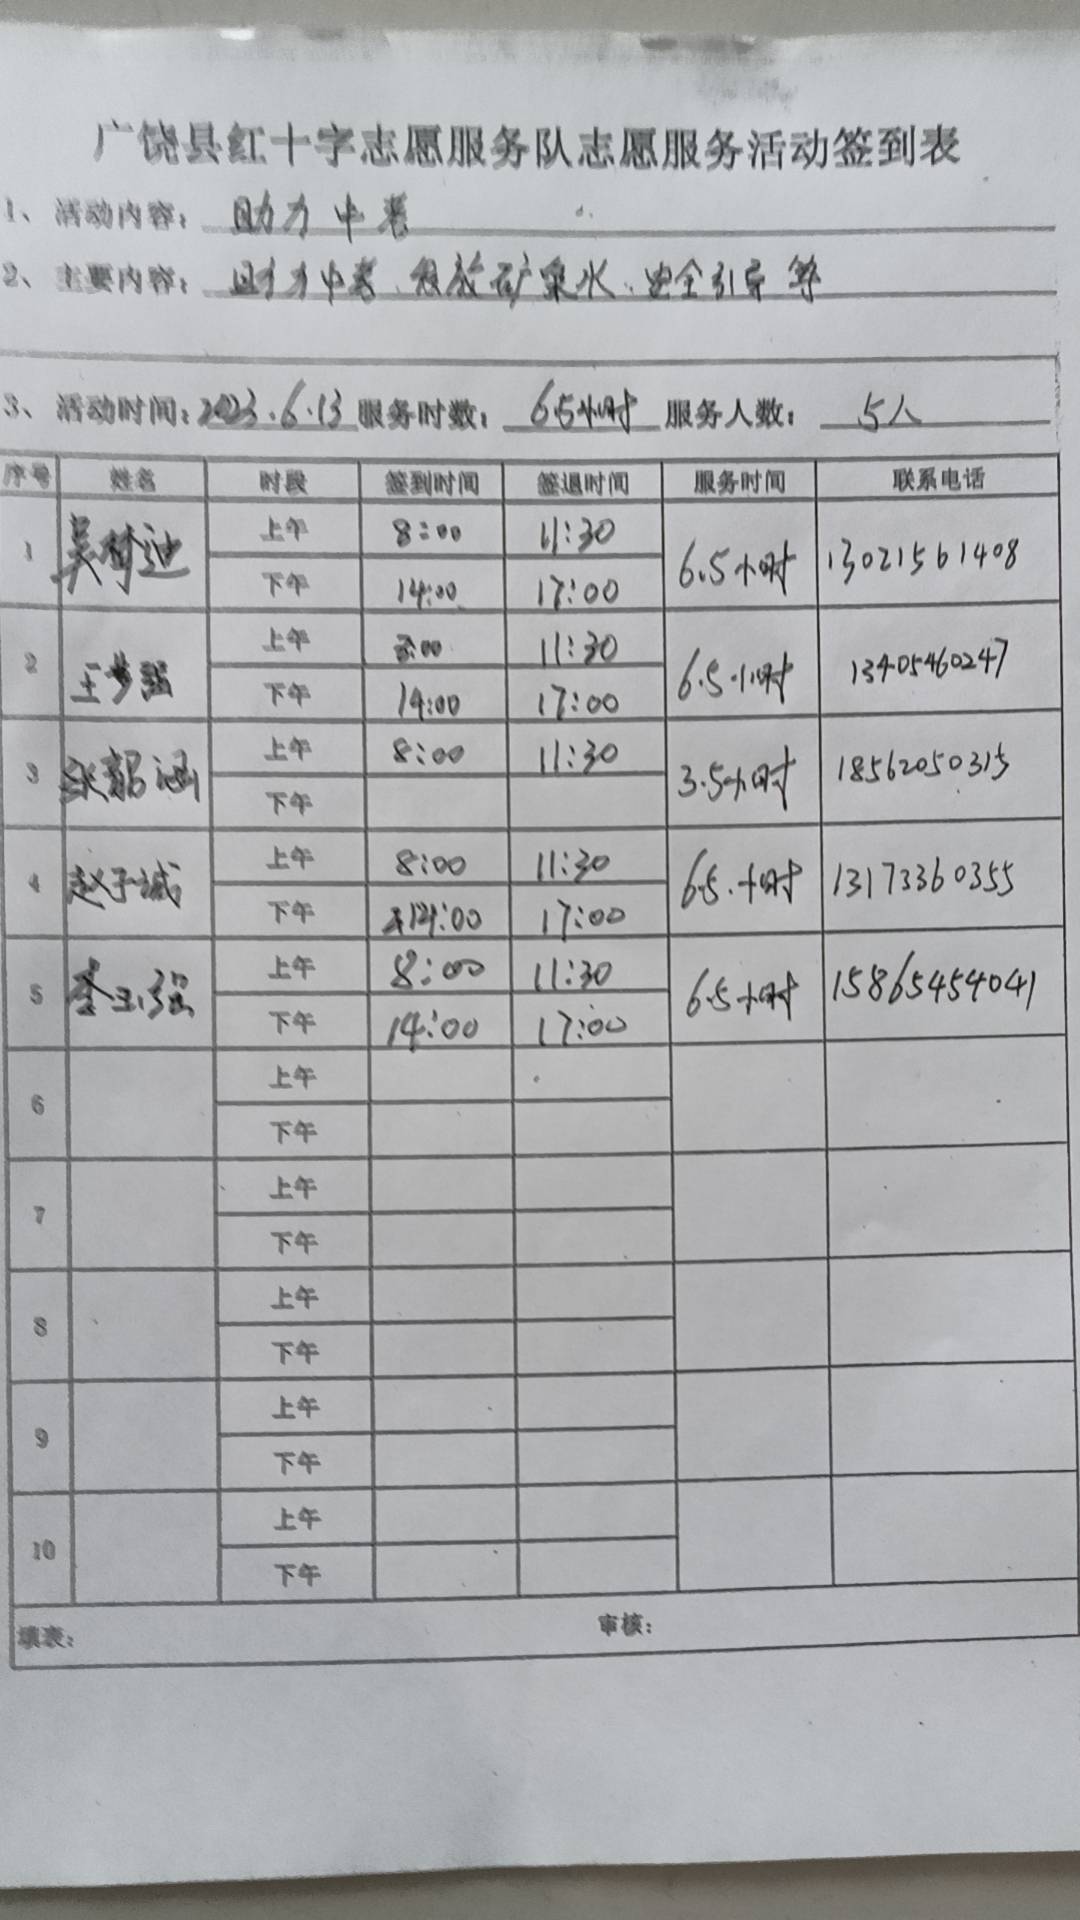 广饶县红十字志愿服务队志愿服务活动签到表
1、活动内容：助力中考
2、主要内容：助力中考、发放矿泉水、安全引导等
3、活动时间：2023.6.13 服务时数：6.5小时 服务人数：5人
序号 姓名 时段 签到时间 签退时间 服务时间 联系电话
1 吴 迪 上午 8:00 11:30 6.5小时 13021561408
下午 14:00 17:00
2 王梦强 上午 8:00 11:30 6.5小时 13405460247
下午 14:00 17:00
3 张韶涵 上午 8:00 11:30 3.5小时 18562050315
下午
4 赵子诚 上午 8:00 11:30 6.5小时 13173360355
下午 14:00 17:00
5 李玉强 上午 8:00 11:30 6.5小时 15865454041
下午 14:00 17:00
6 上午
下午
7 上午
下午
8 上午
下午
9 上午
下午
10 上午
下午
填表： 审核：